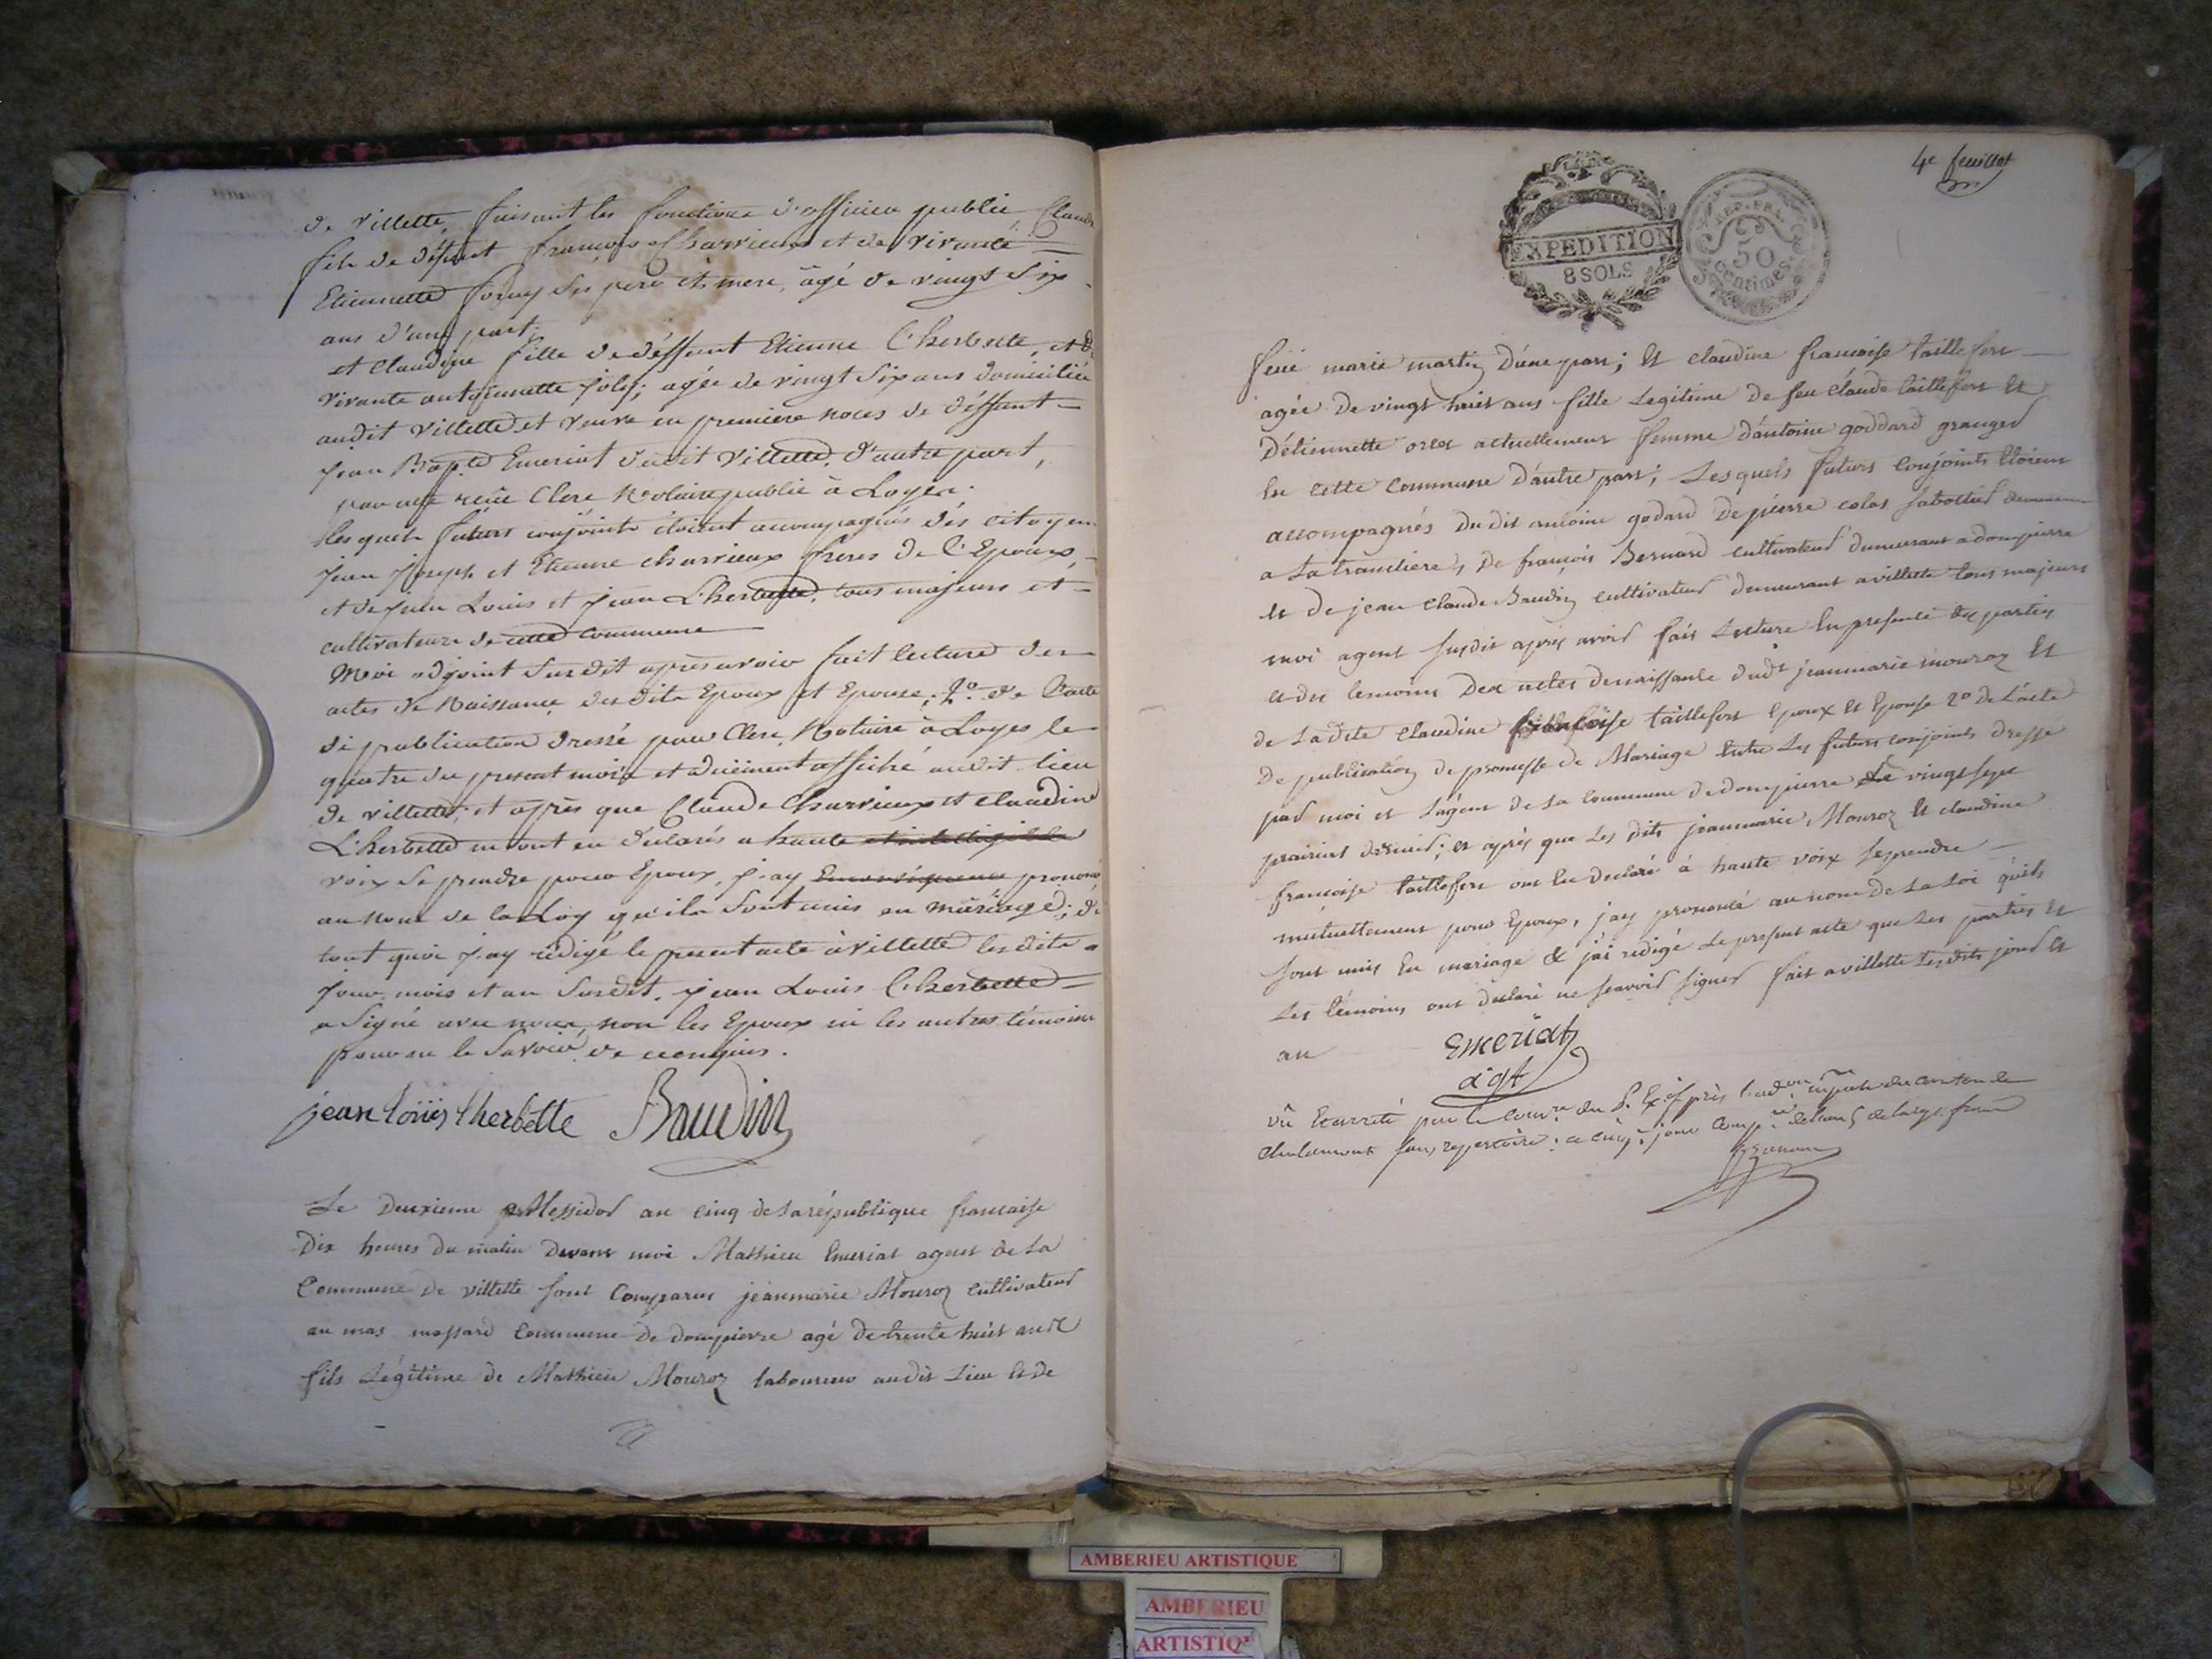 de villette, faisant les fonctions d'officier public Claude
fils de déffunt françois Charvieux et de vivante
Etiennette foray ses pere et mere, âgé de vingt six
ans d'une part;
et Claudine fille de déffunt Etienne Lherbette, et de
vivante antoinette joly; agée de vingt six ans domiciliée
audit villette et veuve en premiere noces de déffunt
jean Bapte Emeriat dudit villette, d'autre part,
par acte reçu Clerc Notaire public à Loyes.
lesquels futurs conjoints étoient accompagnés des citoyens
jean joseph et Etienne charvieux freres de l'Epoux,
et de jean Louis et jean Lherbette, tous majeurs et
cultivateurs de cette commune
Moi adjoint susdit après avoir fait lecture des
actes de Naissance desdits Epoux et Epouse, 2º de l'acte
de publication dressé par Clerc Notaire à Loyes le
quatre du present mois et duëment affiché audit lieu
de villette; et après que Claude Charvieux et Claudine
L'herbette m'ont eu declarés a haute et intelligible
voix se prendre pour Epoux, j'ay En conséquence prononcé
au nom de la Loy qu'ils sont unis en mariage; de
tout quoi j'ay rédigé le present acte à villette lesdits
jour, mois et an susdit. jean Louis Lherbette
a signé avec nous, non les Epoux ni les autres témoins
pour ne le savoir de ce enquis.
jean loüis lherbette Baudin
Le Deuxieme Messidor an cinq de la république francaise
Dix heures du matin Devant moi Mathieu Emeriat agent de la
Commune de villette sont Comparus jeanmarie Mouroz cultivateur
au mas massard Commune de dompierre agé de trente huit ans
fils Légitime de Mathieu Mouroz laboureur audit Lieu et de
4e feuillet
EXPEDITION
8 SOLS
REP. FRA.
50
centimes
feüe marie martin D'une part; Et claudine francoise taillefert
agée De vingt huit ans fille Legitime de feu claude taillefert Et
D'étiennette actuellement femme d'antoine goddard granger
En cette commune D'autre part; Lesquels futurs Conjoints Etoient
accompagnés Du dit antoine godard De pierre colas sabottier
a La tranclière, De françois Bernard cultivateur demeurant a dompierre
Et De jean claude Baudin cultivateur demeurant a villette tous majeurs
moi agent susdit après avoir fait Lecture En presence des parties
et des temoins Des actes denaissance dudt jeanmarie mouroz Et
de La dite claudine francoise taillefert Epoux Et Epouse 2º De L'acte
De publication de promesse de Mariage Entre Les futurs conjoints dressé
par moi et L'agent de La Commune de dompierre Le vingt sept
prairial dernier; et après que Les dits jeanmarie Mouroz Et claudine
françoise taillefert ont Eu Declaré à haute voix se prendre
mutuellement pour Epoux, j'ay prononcé au nom de La Loi qu'ils
sont unis En mariage & j'ai redigé Le present acte que Les parties Et
Les témoins ont declaré ne sçavoir signer fait a villette Lesdits jour Et
an
Emeriat
agt
AMBERIEU ARTISTIQUE
AMBERIEU
ARTISTIQ